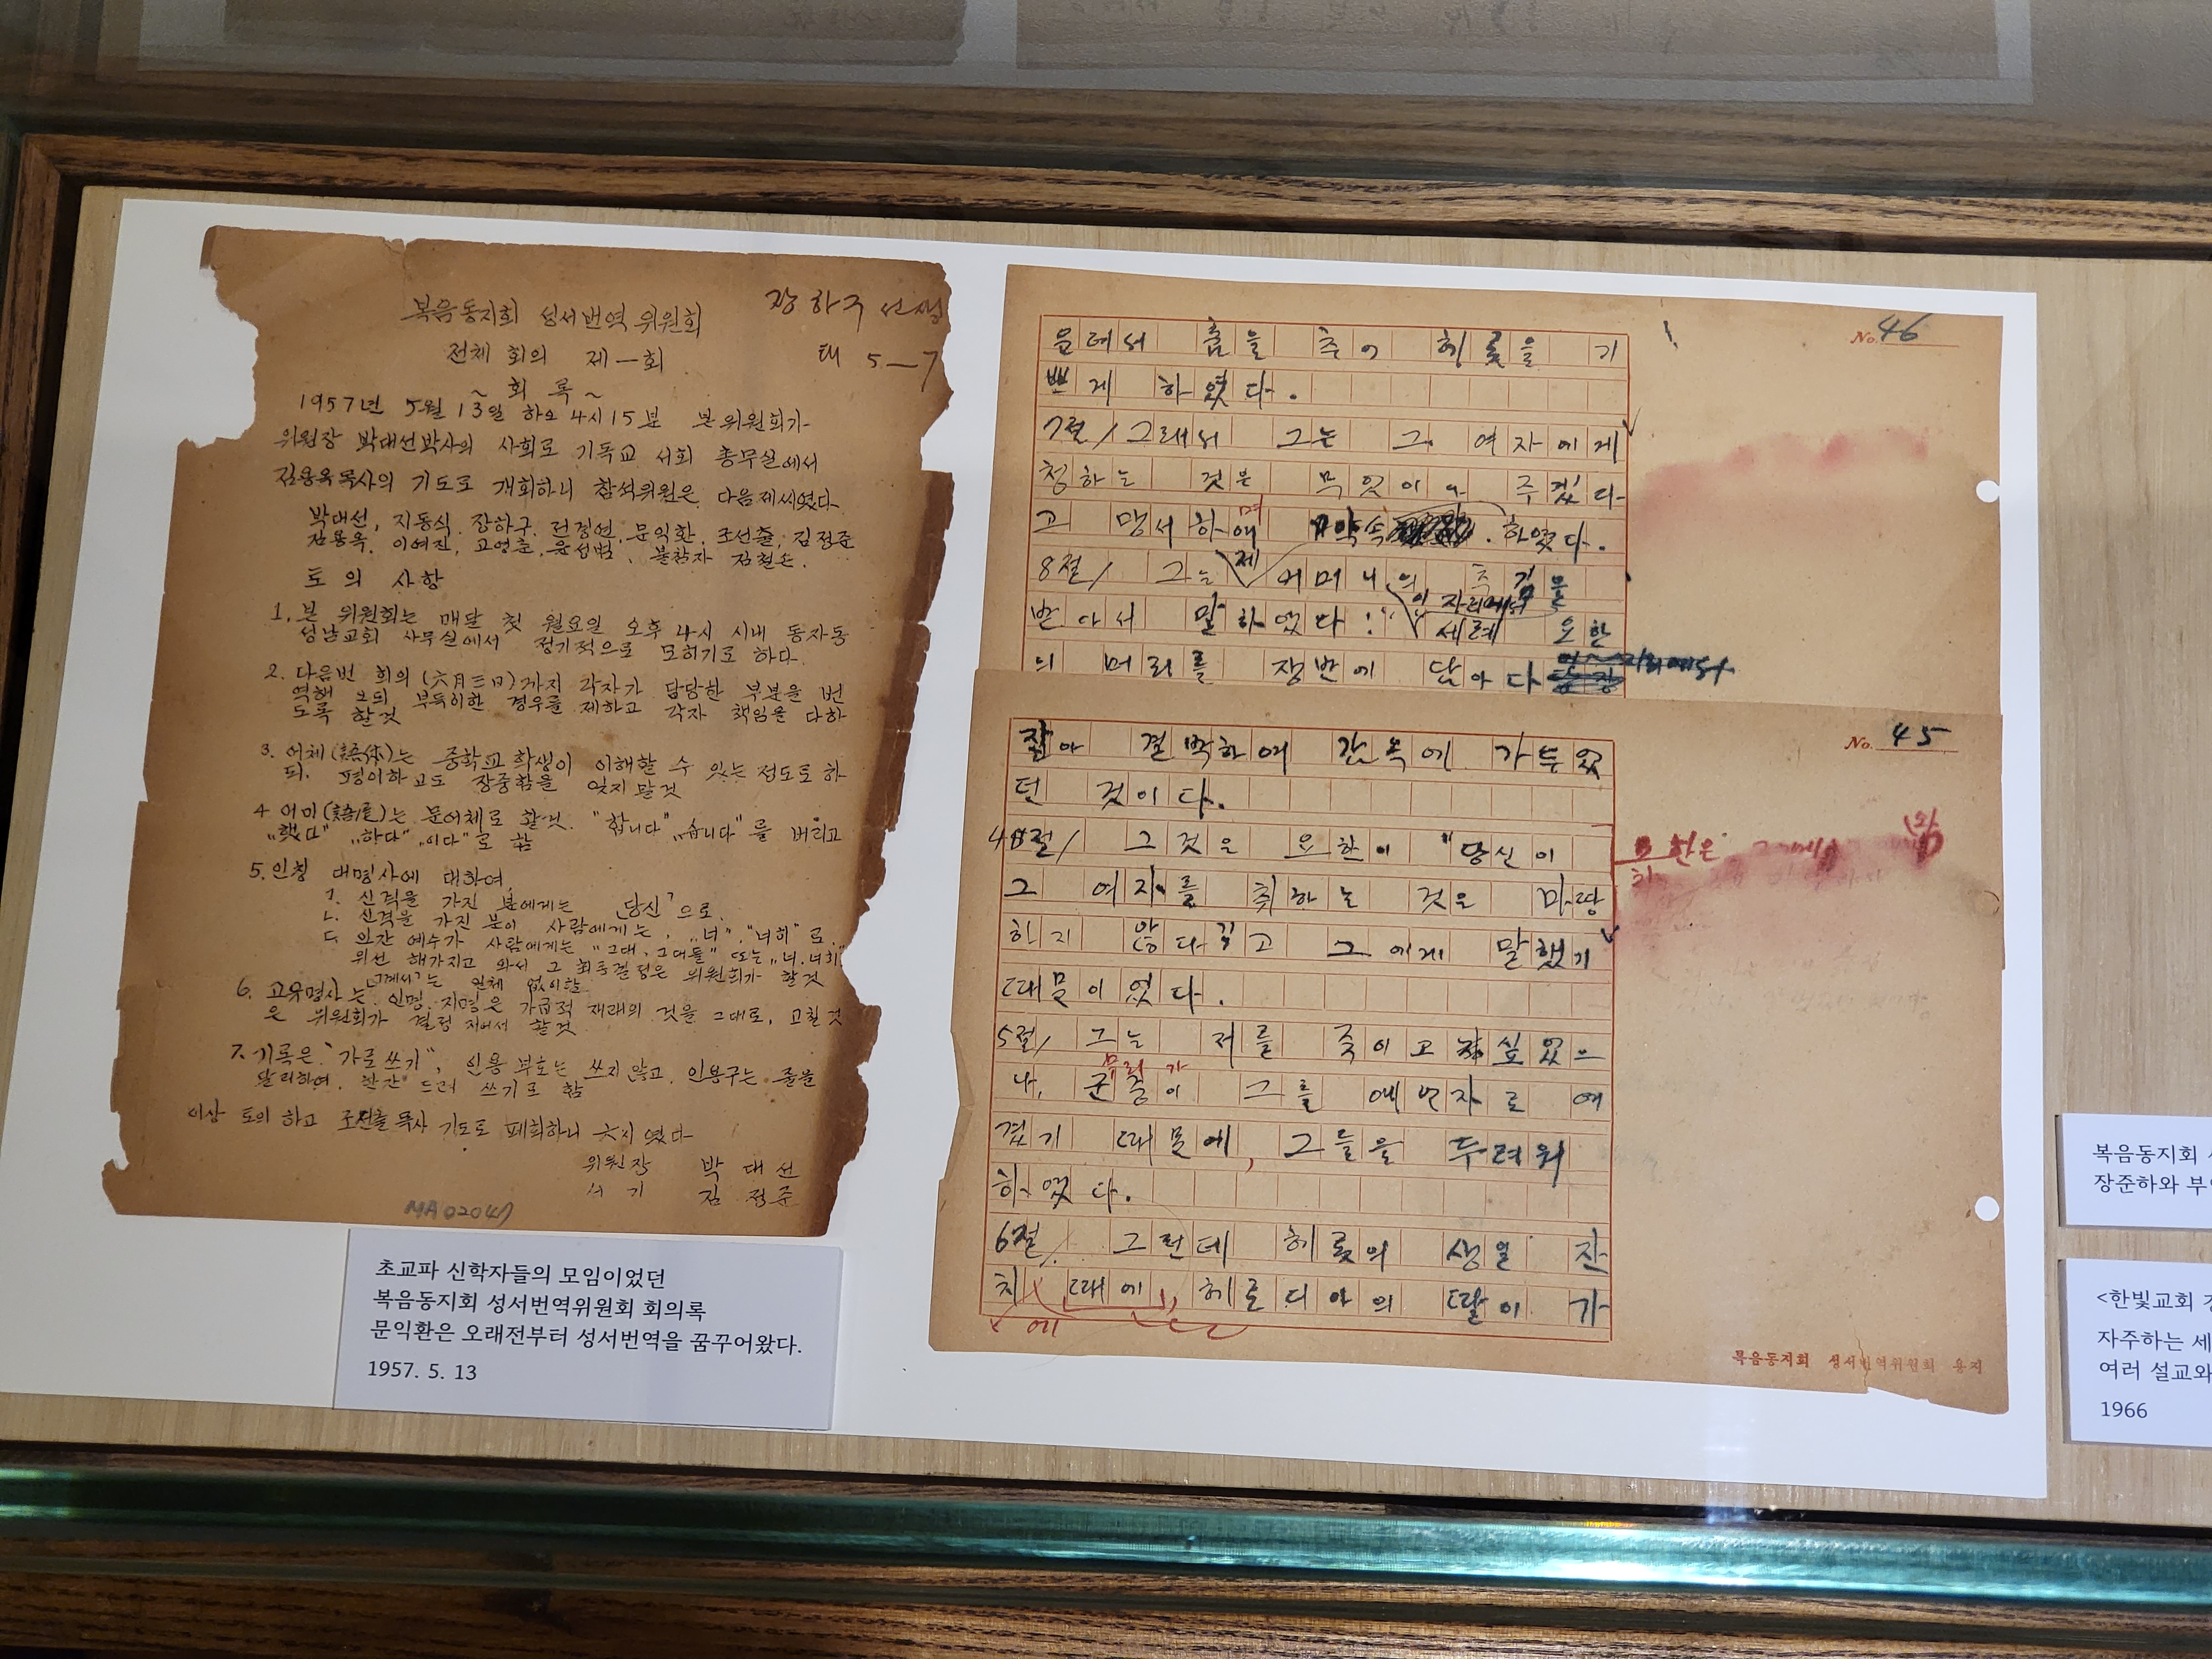 복음동지회 성서번역 위원회
장하구 선생
전체 회의 제一회
태 5—7
~ 회록 ~
1957년 5월 13일 하오 4시 15분 본 위원회가
위원장 박대선박사의 사회로 기독교 서회 총무실에서
김용옥목사의 기도로 개회하니 참석위원은 다음 제씨였다.
박대선, 지동식, 장하구, 전경연, 문익환, 조선출, 김정준
김용옥, 이여진, 고영춘, 윤성범, 불참자 김철손.
토의 사항
1. 본 위원회는 매달 첫 월요일 오후 4시 시내 동자동
성남교회 사무실에서 정기적으로 모히기로 하다.
2. 다음번 회의 (六月三日)까지 각자가 담당한 부분을 번
역해 오되 부득이한 경우를 제하고 각자 책임을 다하
도록 할것
3. 어체(語体)는 중학교 학생이 이해할 수 있는 정도로 하
되, 평이하고도 장중함을 잊지 말것
4 어미(語尾)는 문어체로 할것. "합니다" "습니다"를 버리고
"했다" "하다" "이다"로 함
5. 인칭 대명사에 대하여
ㄱ. 신격을 가진 분에게는 "당신"으로
ㄴ. 신격을 가진 분이 사람에게는, "너", "너히"로
ㄷ. 인간 예수가 사람에게는 "그대, 그대들" 또는 "너, 너히"
위선 해가지고 와서 그 최종결정은 위원회가 할것
"그께서"는 일체 없이함
6. 고유명사는, 인명, 지명은 가급적 재래의 것을 그대로, 고칠것
은 위원회가 결정 지어서 할것
7. 기록은 "가로쓰기", 인용 부호는 쓰지 않고, 인용구는 줄을
달리하여, 한간 드려 쓰기로 함
이상 토의 하고 조선출 목사 기도로 폐회하니 六시 였다
위원장 박대선
서기 김정준
MA02047
초교파 신학자들의 모임이었던
복음동지회 성서번역위원회 회의록
문익환은 오래전부터 성서번역을 꿈꾸어왔다.
1957. 5. 13
No. 46
춤을 추어 헤롯을 기
쁘게 하였다.
7절/ 그래서 그는 그 여자에게
청하는 것은 무엇이나 주겠다
고 맹서하며 약속 하였다.
8절/ 그는 제 어머니의 추김을
받아서 말하였다: "이 자리에서
세례 요한
의 머리를 쟁반에 담아 다
No. 45
잡아 결박하여 감옥에 가두었
던 것이다.
4절/ 그것은 요한이 "당신이
그 여자를 취하는 것은 마땅
하지 않다"고 그에게 말했기
때문이었다.
요한은
5절/ 그는 저를 죽이고 싶었으
무리가
나, 군중이 그를 예언자로 여
겼기 때문에, 그들을 두려워
하였다.
6절/ 그런데 헤롯의 생일 잔
치 때에, 헤로디아의 딸이 가
에
복음동지회 성서번역위원회 용지
복음동지회
장준하와 부
<한빛교회
자주하는 세
여러 설교와
1966